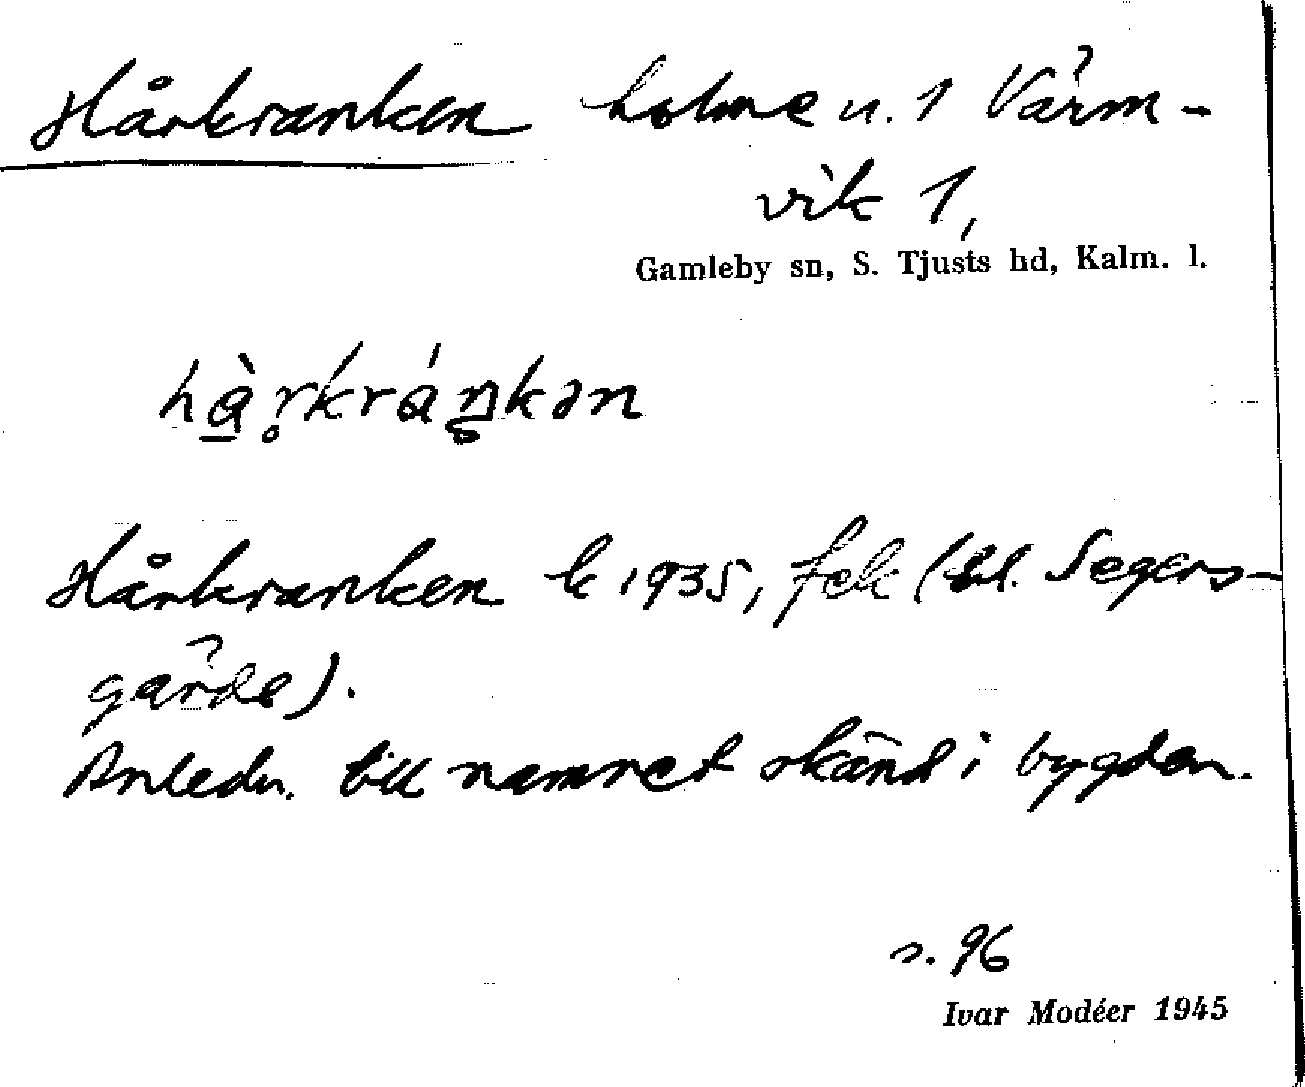 Hårkranken holme u. 1 Värm-
vik 1,
Gamleby sn, S. Tjusts hd, Kalm. l.
hàr̥kráŋkən
Hårkranken k 1935, fek (bl. Segers-
gärde).
Anledn. till namnet okänd i bygden.
s. 96
Ivar Modéer 1945